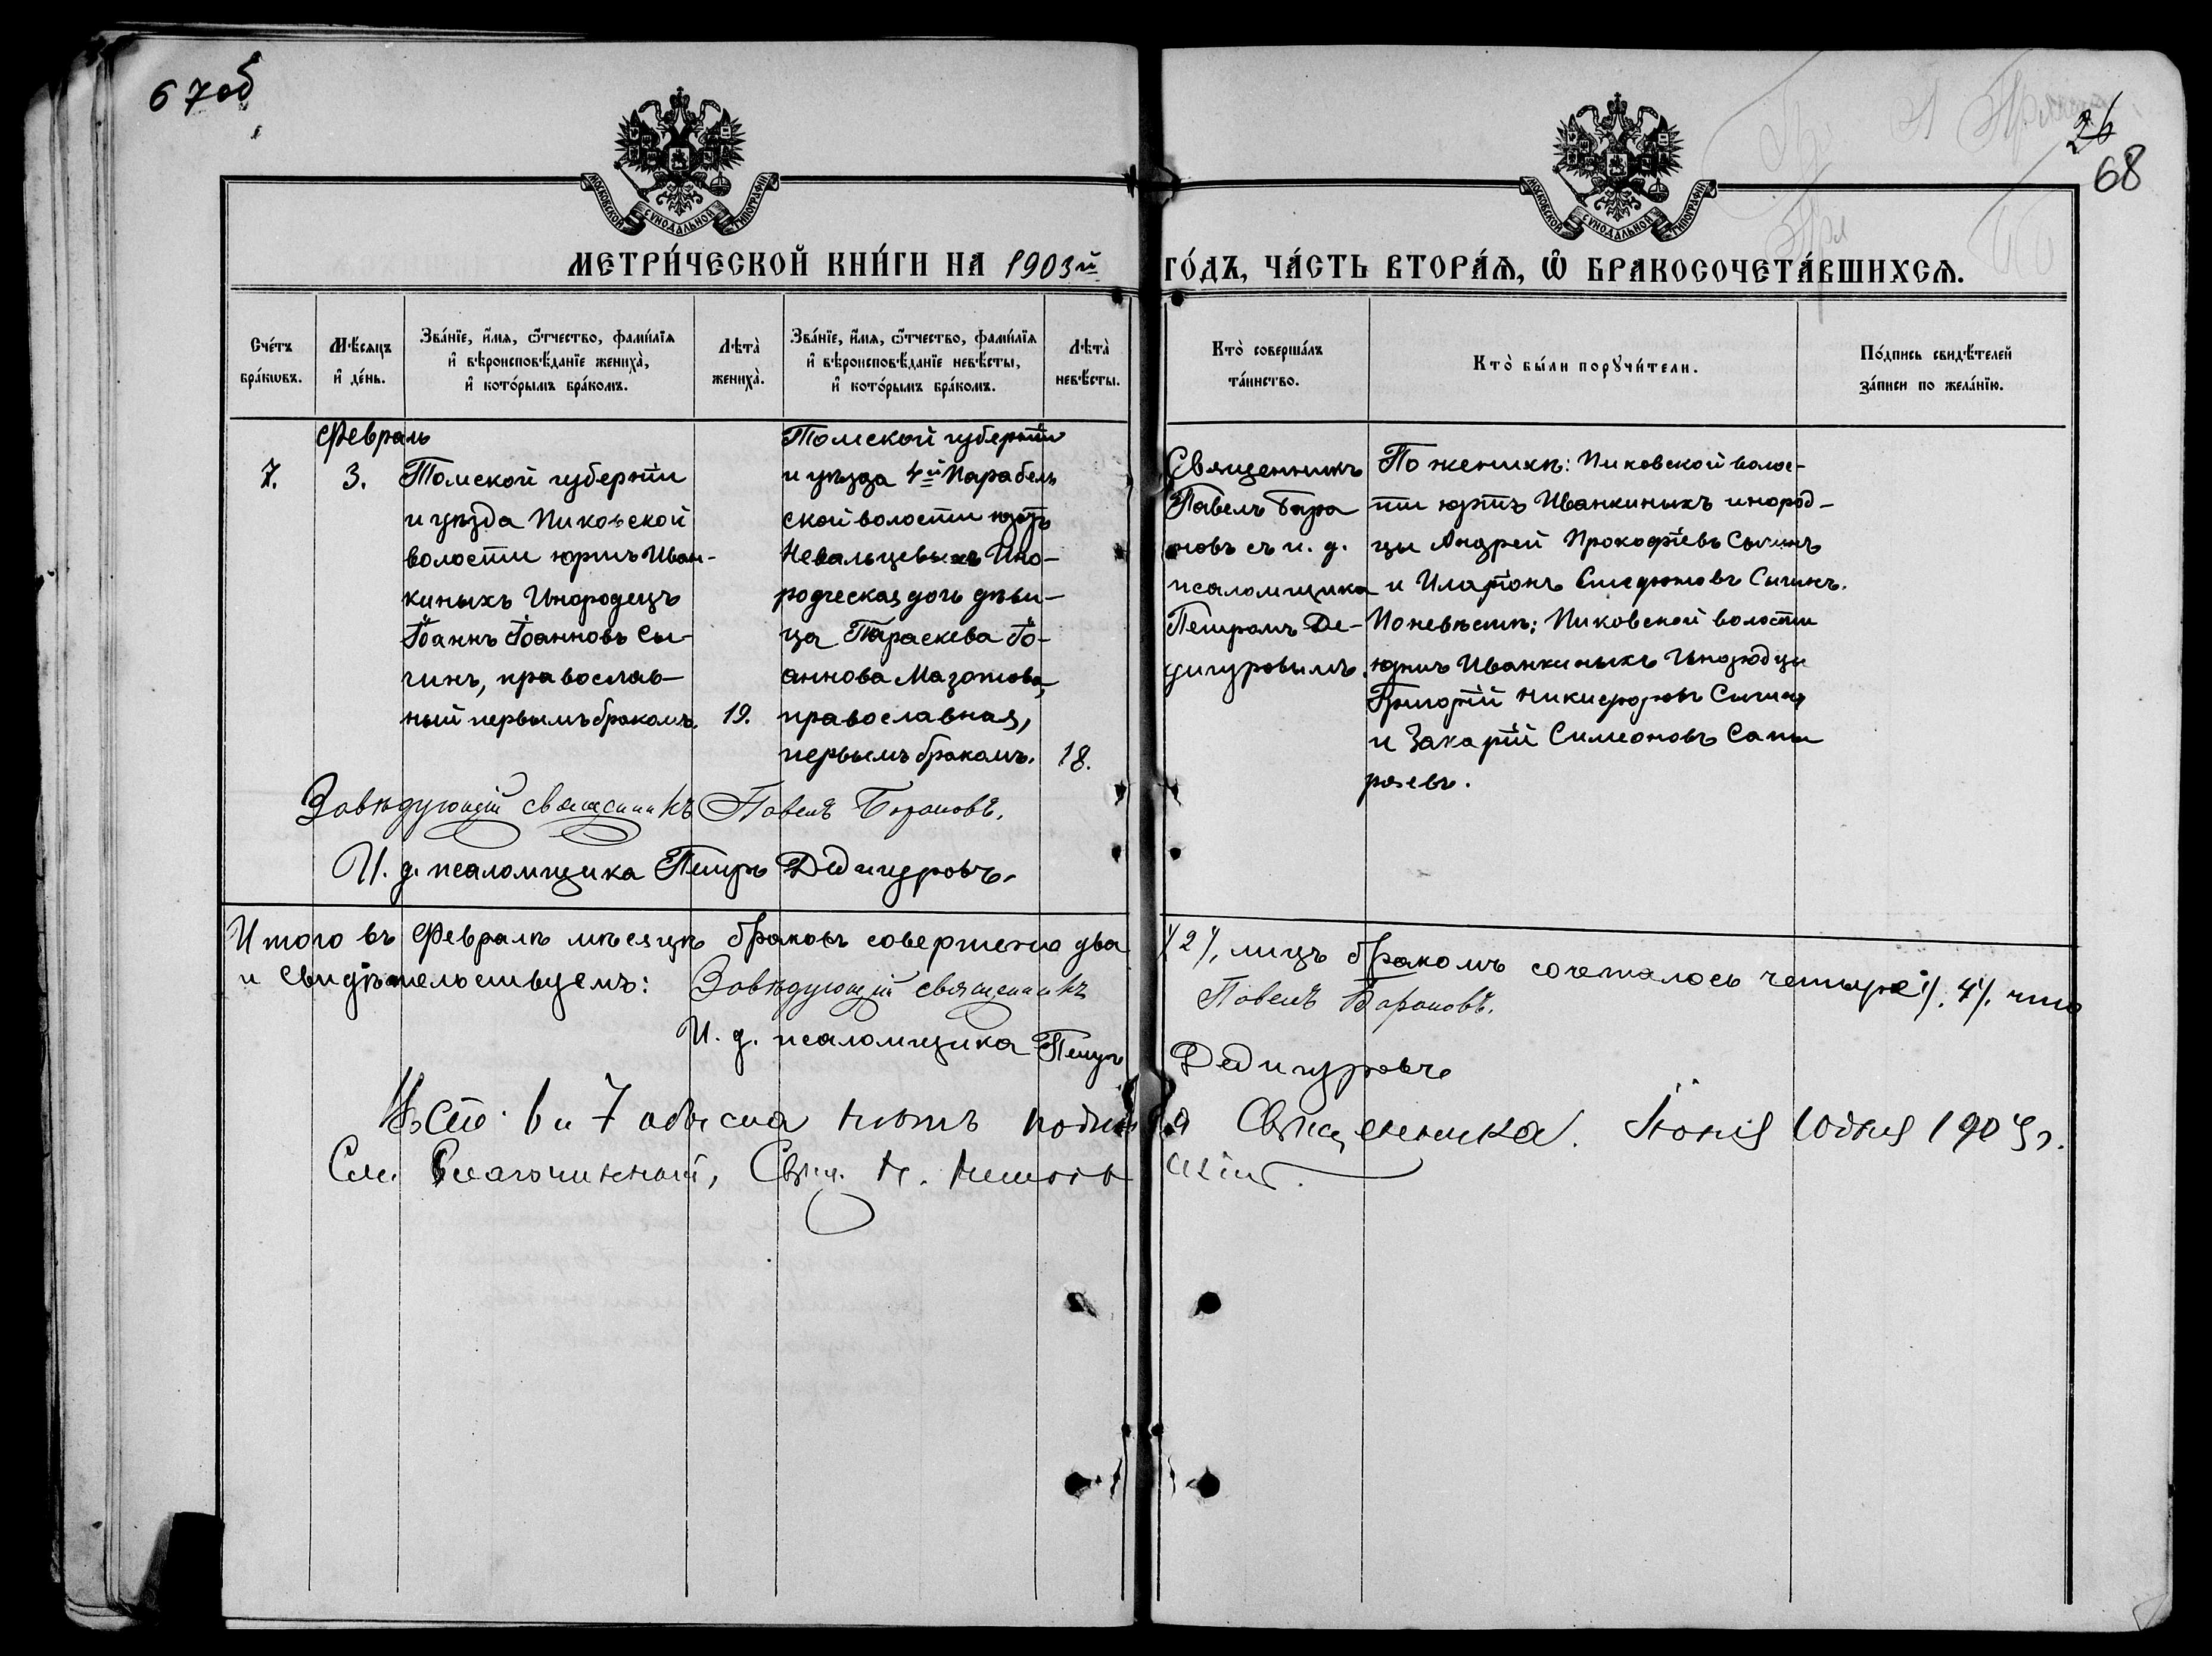 67об
26
68
МОСКОВСКОЙ СѴНОДАЛЬНОЙ ТИПОГРАФІИ
МОСКОВСКОЙ СѴНОДАЛЬНОЙ ТИПОГРАФІИ
МЕТРИ́ЧЕСКОЙ КНИ́ГИ НА 1903й ГО́ДЪ, ЧА́СТЬ ВТОРА́Ѧ, Ѽ БРАКОСОЧЕТА́ВШИХСѦ.
Сче́тъ
бра́кѡвъ.
Мѣ́сяцъ
и҆ де́нь.
Зва́нїе, и҆́мя, ѻ҆́тчество, фами́лїя
и҆ вѣроисповѣ́данїе жениха̀,
и҆ кото́рымъ бра́комъ.
Лѣта̀
жениха̀.
Зва́нїе, и҆́мя, ѻ҆́тчество, фами́лїя
и҆ вѣроисповѣ́данїе невѣ́сты,
и҆ кото́рымъ бра́комъ.
Лѣта̀
невѣ́сты.
Кто̀ соверша́лъ
та́инство.
Кто̀ бы́ли порꙋчи́тели.
По́дпись свидѣ́телей
за́писи по жела́нїю.
7.
Февраль
3.
Томской губерніи
и уѣзда Пиковской
волости юртъ Иван-
киныхъ Инородецъ
Іоаннъ Іоанновъ Сы-
чинъ, православ-
ный первымъ бракомъ.
19.
Томской губерніи
и уѣзда 4й Парабель
ской волости юртъ
Невальцевыхъ Ино-
родческая дочь дѣви-
ца Параскева Іо-
аннова Мазотова,
православная,
первымъ бракомъ.
18.
Священникъ
Павелъ Бара
новъ съ и. д.
псаломщика
Петромъ Де-
дигуровымъ.
По женихѣ: Пиковской волос-
ти юртъ Иванкиныхъ инород-
цы Андрей Прокофіевъ Сычинъ
и Сычинъ.
По невѣстѣ: Пиковской волости
юртъ Иванкиныхъ Инородцы
Григорій Никифоровъ Сычинъ
и Захарій Симеоновъ Сапы
рѣевъ.
Завѣдующій священникъ Павелъ Барановъ.
И. д. псаломщика Петръ Дедигуровъ.
Итого въ Февралѣ мѣсяцѣ браковъ совершено два /2/, лицъ бракомъ сочеталось четыре /4/. что
и свидѣтельствуемъ: Завѣдующій священникъ Павелъ Барановъ.
И. д. псаломщика Петръ Дедигуровъ
и 7 нѣтъ подписи Священника. Іюня 10 дня 1903 г.
Благочинный, Свящ. Н.